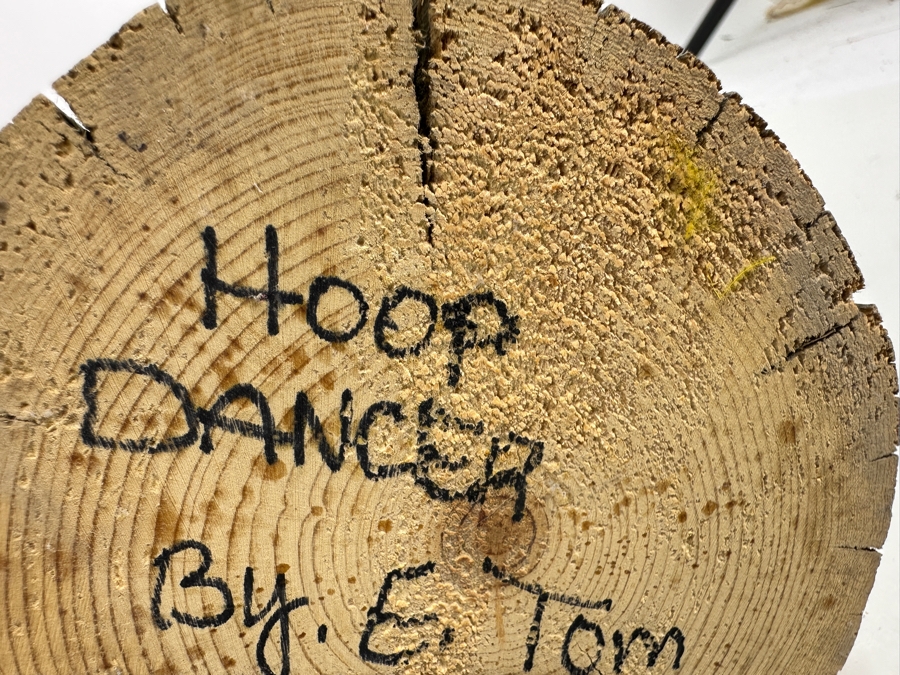 Hoop
DANCER
By. E. Tom